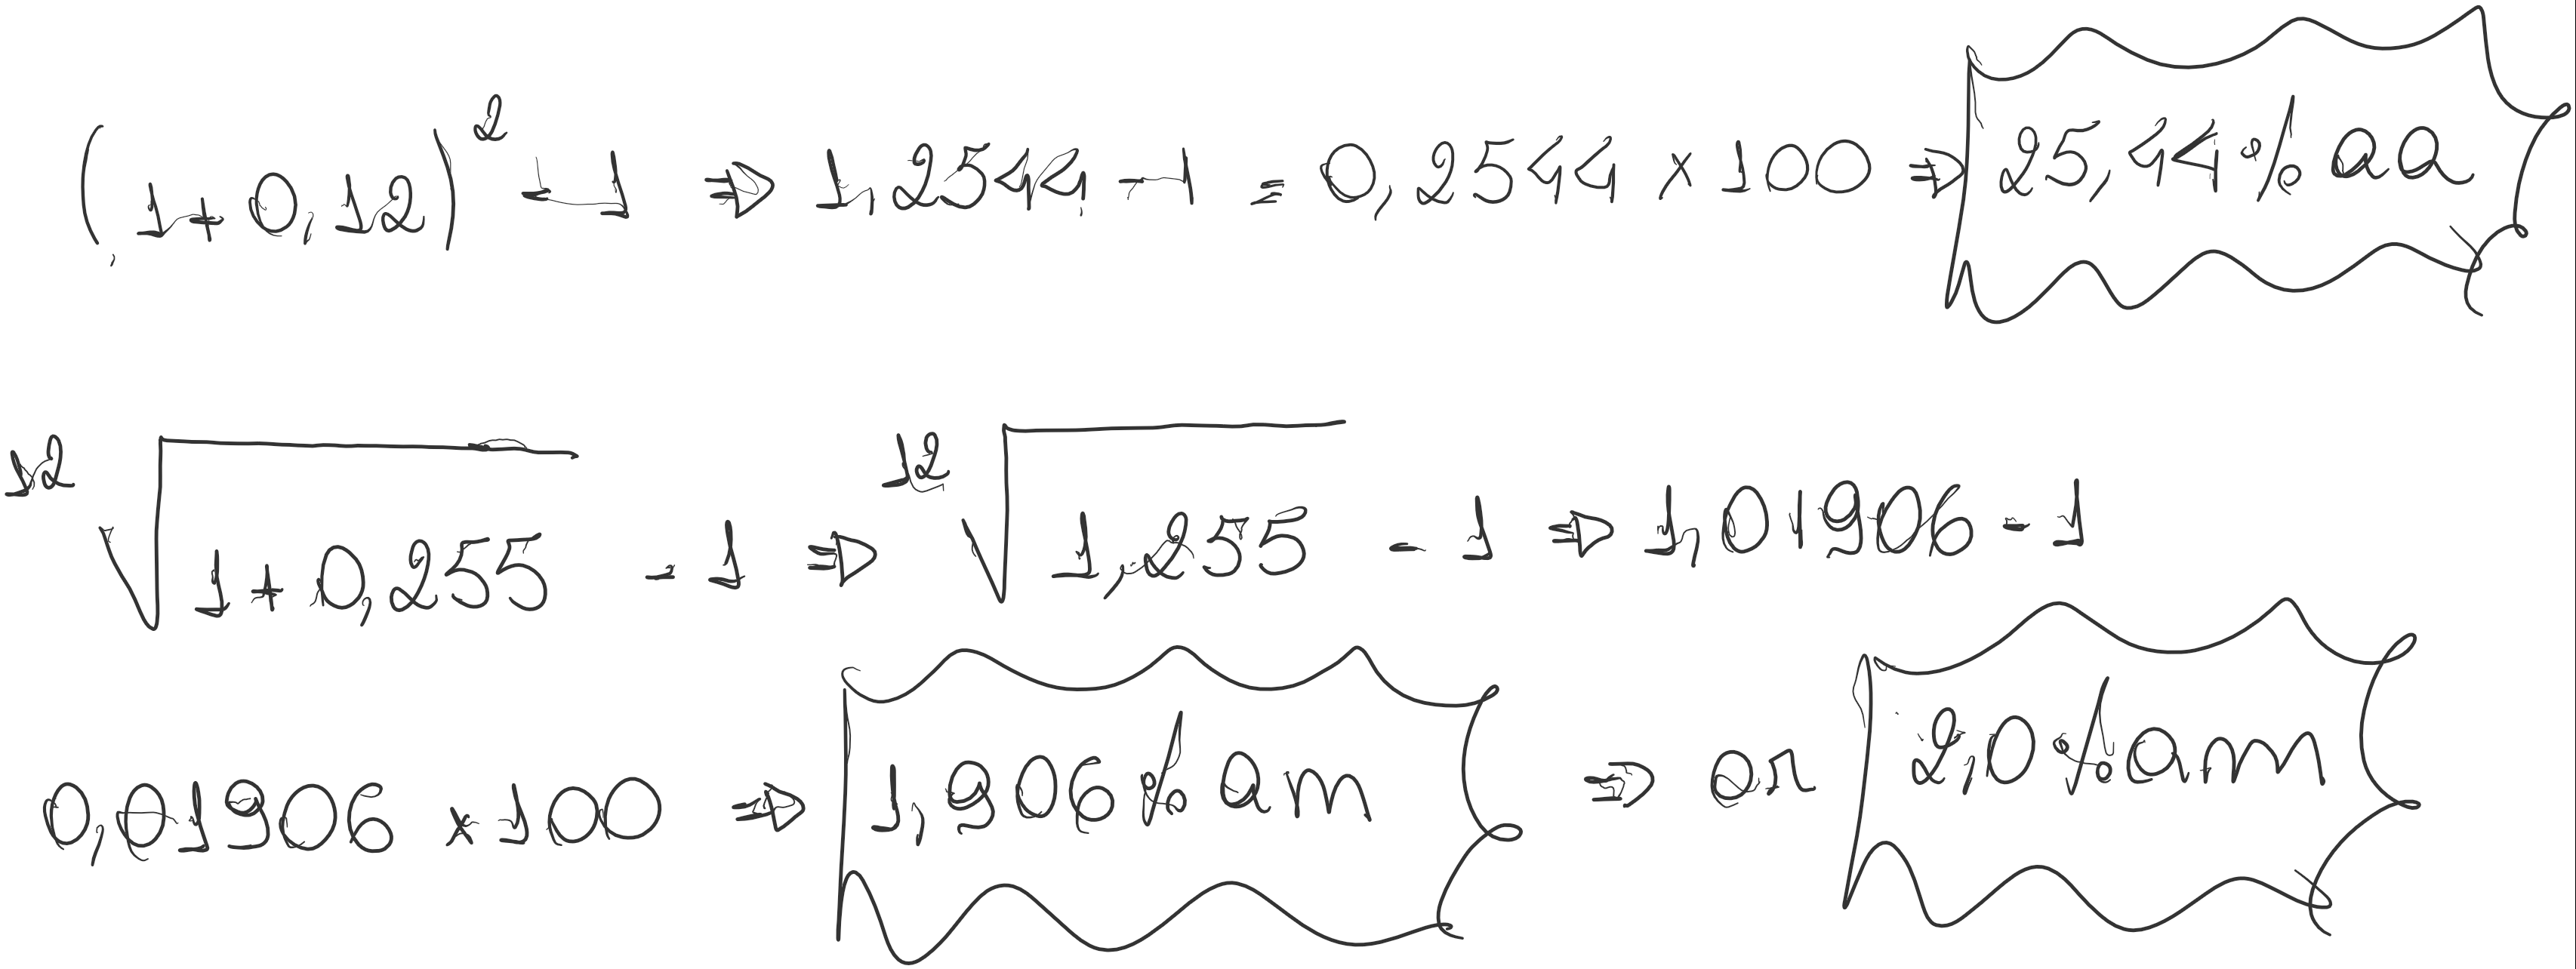 (1+0,12)² - 1 ⇒ 1,2544 - 1 = 0,2544 x 100 ⇒ 25,44% aa
¹²√1+0,255 - 1 ⇒ ¹²√1,255 - 1 ⇒ 1,01906 - 1
0,01906 x 100 ⇒ 1,906% am ⇒ or 2,0% am